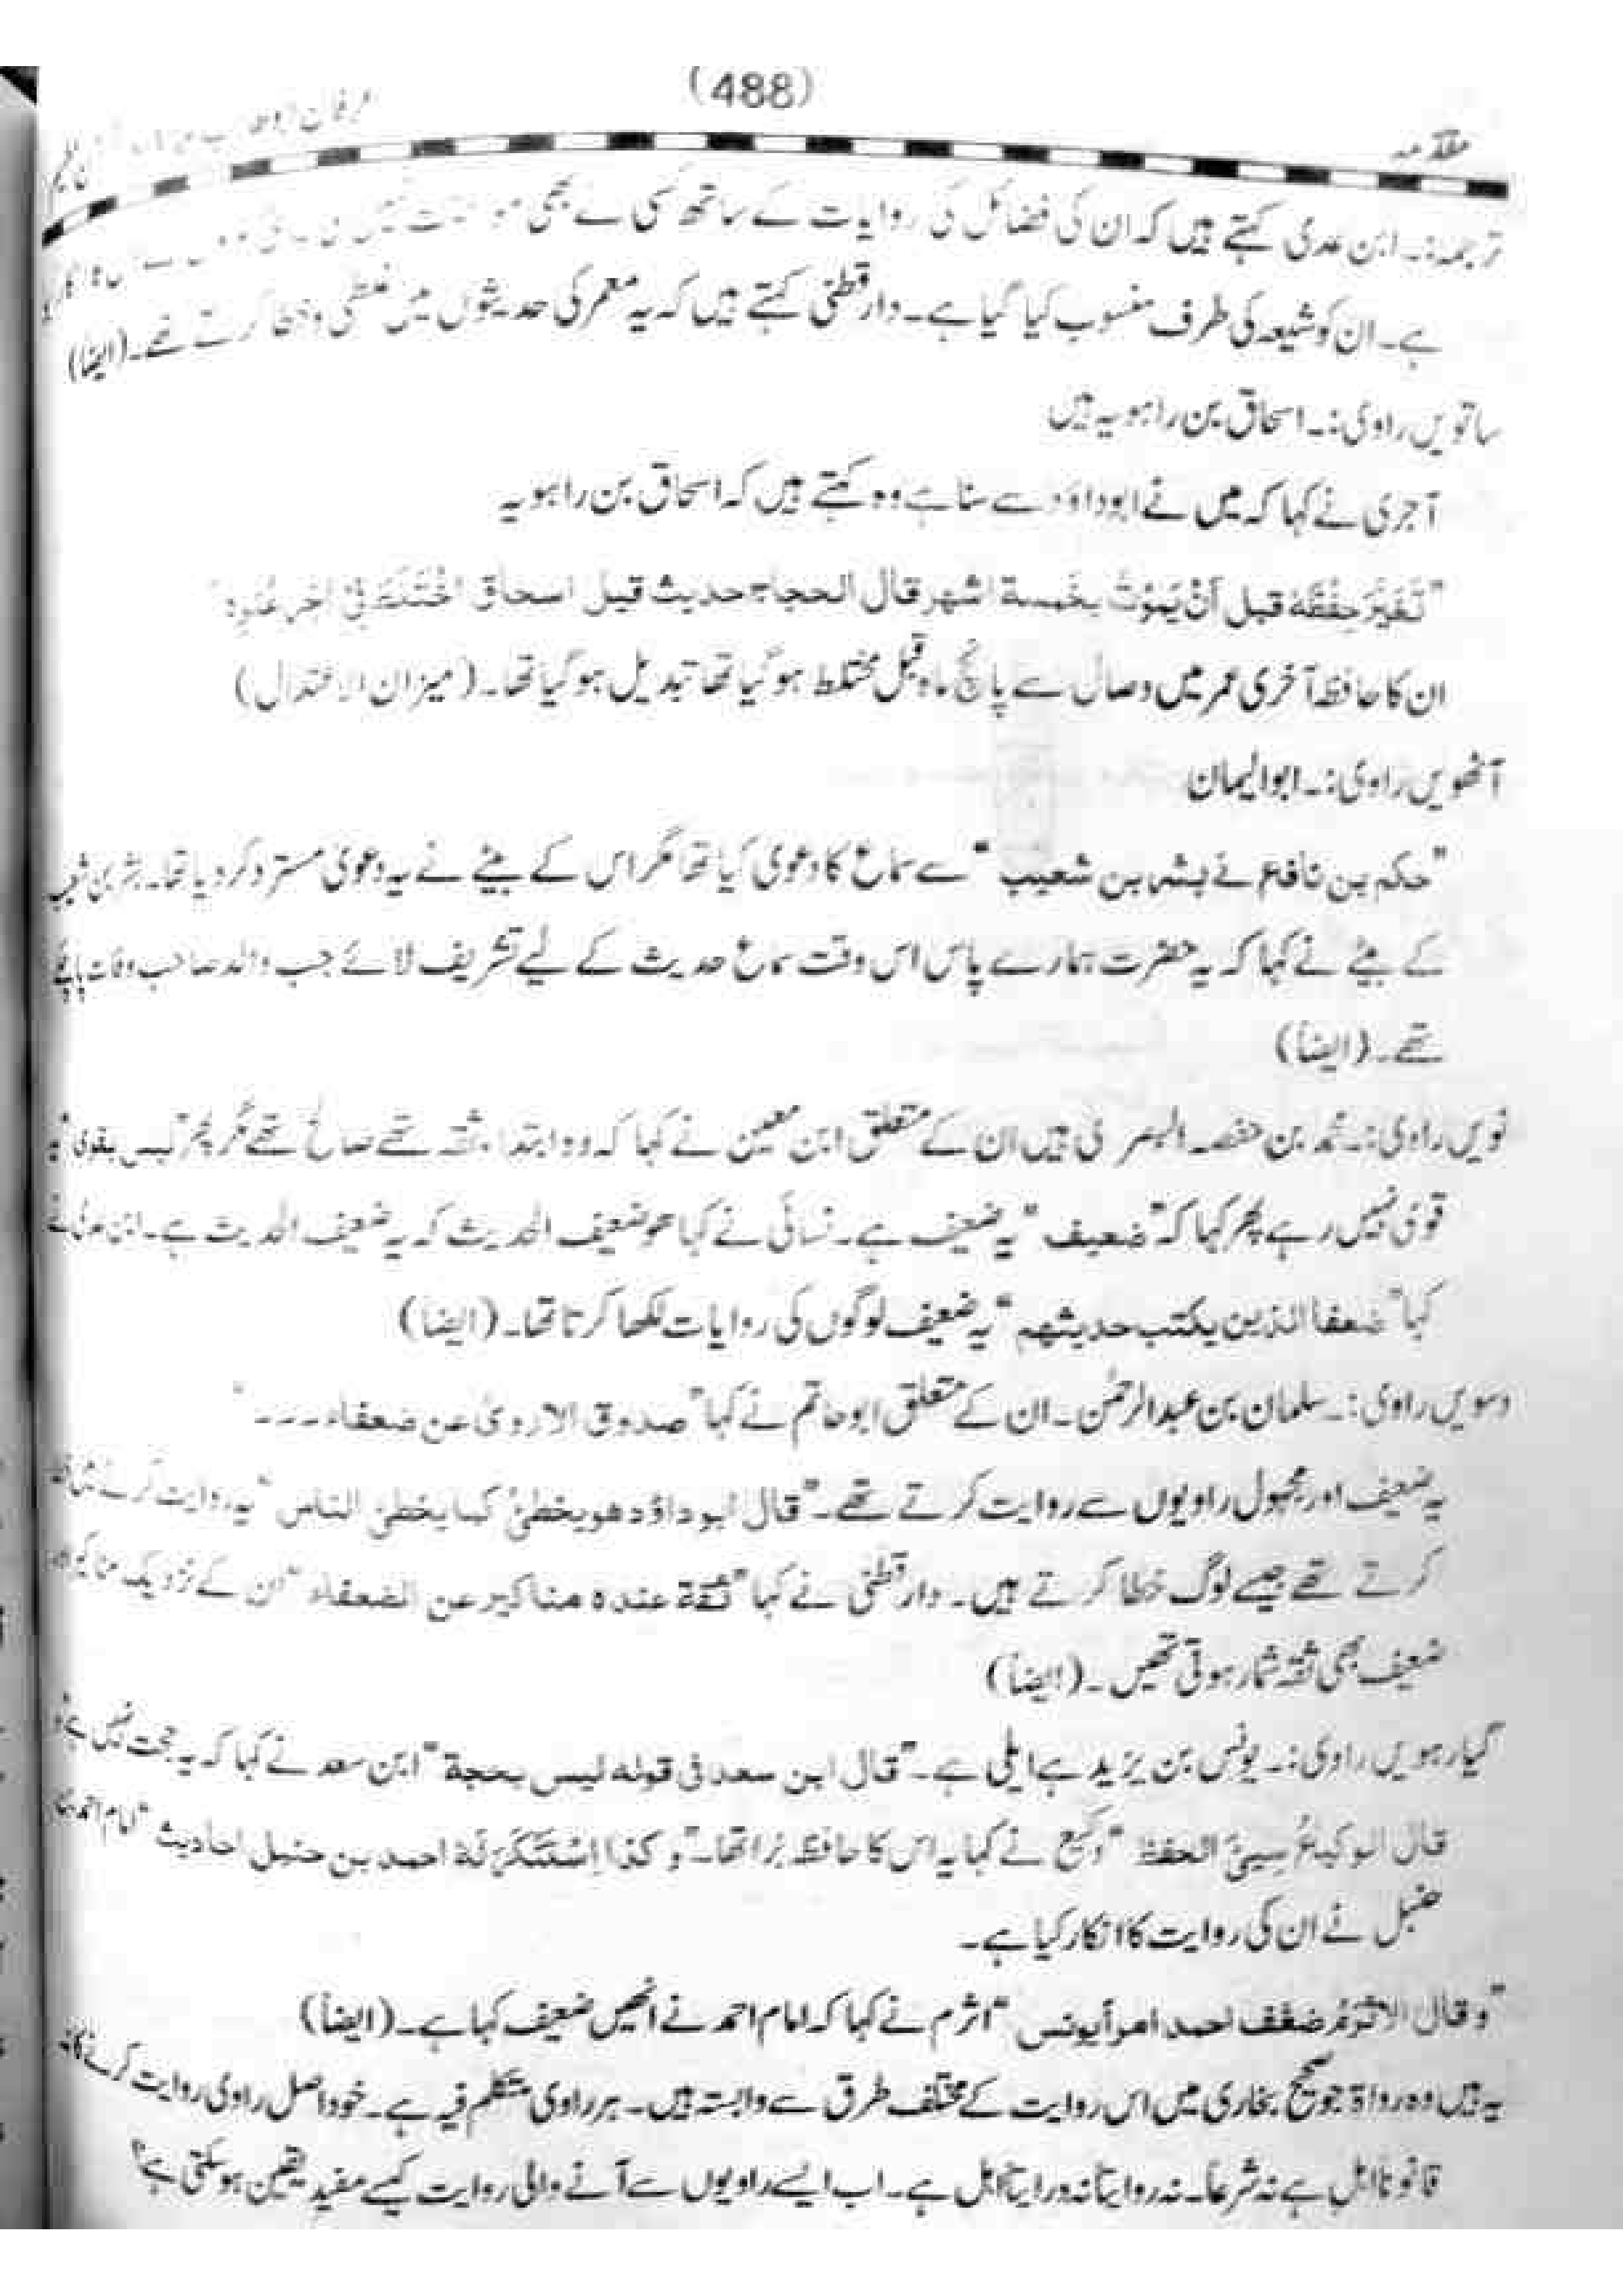 (488)
مقدمہ
ترجمہ:۔ ابن عدی کہتے ہیں کہ ان کی فضائل کی روایات کے ساتھ کسی نے بھی
ہے۔ ان کو شیعہ کی طرف منسوب کیا گیا ہے۔ دارقطنی کہتے ہیں کہ یہ معمر کی حدیثوں میں غلطی و خطا کرتے تھے۔ (ایضاً)
ساتویں راوی:۔ اسحاق بن راہویہ ہیں
آجری نے کہا کہ میں نے ابوداؤد سے سنا ہے وہ کہتے ہیں کہ اسحاق بن راہویہ
"تَغَيَّرَ حِفْظُهٗ قبل أنْ يَمُوْتَ بخمسة اشهر قال الحجاج حديث قيل اسحاق اخْتَلَطَ فِيْ اٰخِرِ عُمُرِهٖ"
ان کا حافظہ آخری عمر میں وصال سے پانچ ماہ قبل مختلط ہو گیا تھا تبدیل ہو گیا تھا۔ (میزان الاعتدال)
آٹھویں راوی:۔ ابوالیمان
"حکم بن نافع نے بشر بن شعیب" سے سماع کا دعویٰ کیا تھا مگر اس کے بیٹے نے یہ دعویٰ مسترد کر دیا تھا۔ بشر بن شعیب
کے بیٹے نے کہا کہ یہ حضرت ہمارے پاس اس وقت سماع حدیث کے لیے تشریف لائے جب والد صاحب وفات پا چکے
تھے۔ (ایضاً)
نویں راوی:۔ محمد بن حفصہ البصری ہیں ان کے متعلق ابن معین نے کہا کہ وہ ابتداء ثقہ تھے صالح تھے مگر پھر لیس بقوی
قوی نہیں رہے پھر کہا کہ "ضعیف" یہ ضعیف ہے۔ نسائی نے کہا ھو ضعیف الحدیث کہ یہ ضعیف الحدیث ہے۔ ابن عدی نے
کہا "ضعفا الذین یکتب حدیثھم" یہ ضعیف لوگوں کی روایات لکھا کرتا تھا۔ (ایضاً)
دسویں راوی:۔ سلمان بن عبدالرحمٰن۔ ان کے متعلق ابو حاتم نے کہا "صدوق الا روی عن ضعفاء۔۔۔"
یہ ضعیف اور مجہول راویوں سے روایت کرتے تھے۔ "قال ابو داؤد ھو یخطئُ کما یخطئ الناس" یہ روایت کرنے
کرتے تھے جیسے لوگ خطا کرتے ہیں۔ دارقطنی نے کہا "ثقة عنده مناكير عن الضعفاء" ان کے نزدیک
ضعیف بھی ثقہ شمار ہوتی تھیں۔ (ایضاً)
گیارہویں راوی:۔ یونس بن یزید ہے ایلی ہے۔ "قال ابن سعد فی قوله لیس بحجة" ابن سعد نے کہا کہ یہ حجت نہیں ہے
قال الوکیعُ سیئُ الحفظ" وکیع نے کہا یہ اس کا حافظہ برا تھا۔ "و کذا اِسْتَنْکَرَ لَهٗ احمد بن حنبل احادیث" امام احمد بن
حنبل نے ان کی روایت کا انکار کیا ہے۔
"وقال الاثرمُ ضعّف احمد امر یونس" اثرم نے کہا کہ امام احمد نے انھیں ضعیف کہا ہے۔ (ایضاً)
یہ ہیں وہ رواۃ جو صحیح بخاری میں اس روایت کے مختلف طرق سے وابستہ ہیں۔ ہر راوی متکلم فیہ ہے۔ خود اصل راوی روایت کرنے کا
قانوناً اہل ہے نہ شرعاً۔ نہ روایتاً نہ درایتاً اہل ہے۔ اب ایسے راویوں سے آنے والی روایت کیسے مفید یقین ہو سکتی ہے؟